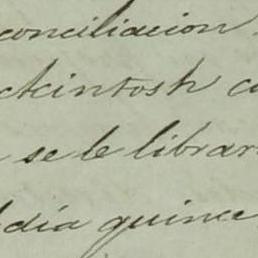 conciliacion
ckintosh
se le librar
dia quince